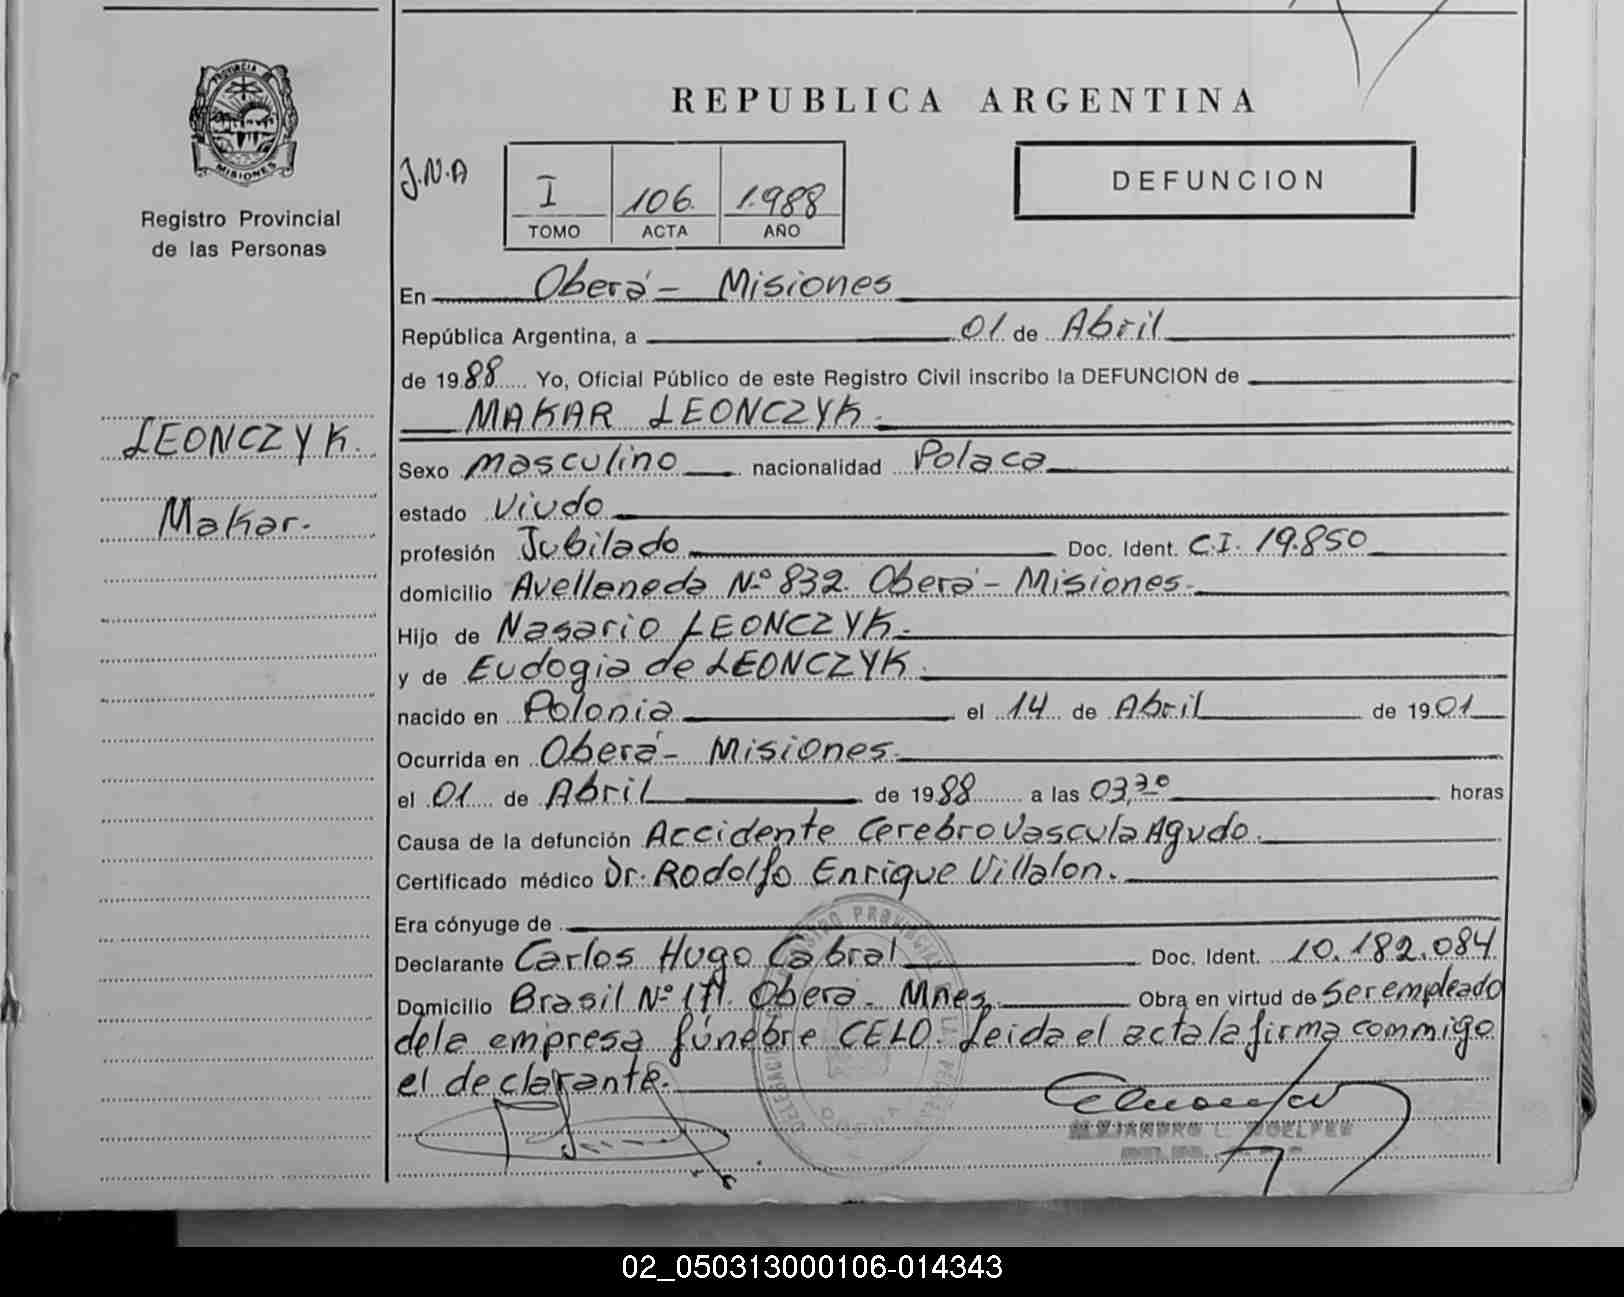 PROVINCIA DE
MISIONES
Registro Provincial
de las Personas
LEONCZYK.
Makar.
REPUBLICA ARGENTINA
J.N.A
I 106. 1.988
TOMO ACTA AÑO
DEFUNCION
En Oberá - Misiones
República Argentina, a 01 de Abril
de 1988 Yo, Oficial Público de este Registro Civil inscribo la DEFUNCION de
MAKAR LEONCZYK.
Sexo masculino nacionalidad Polaca
estado Viudo
profesión Jubilado Doc. Ident. C.I. 19.850
domicilio Avellaneda Nº 832. Oberá - Misiones.
Hijo de Nasario LEONCZYK.
y de Eudogia de LEONCZYK.
nacido en Polonia el 14 de Abril de 1901
Ocurrida en Oberá - Misiones.
el 01 de Abril de 1988 a las 03,30 horas
Causa de la defunción Accidente CerebroVascula Agudo.
Certificado médico Dr. Rodolfo Enrique Villalon.
Era cónyuge de
Declarante Carlos Hugo Cabral Doc. Ident. 10.182.084
Domicilio Brasil Nº 171. Oberá - Mnes. Obra en virtud de Ser empleado
de la empresa fúnebre CELO. Leida el acta la firma commigo
el declarante.
02_050313000106-014343